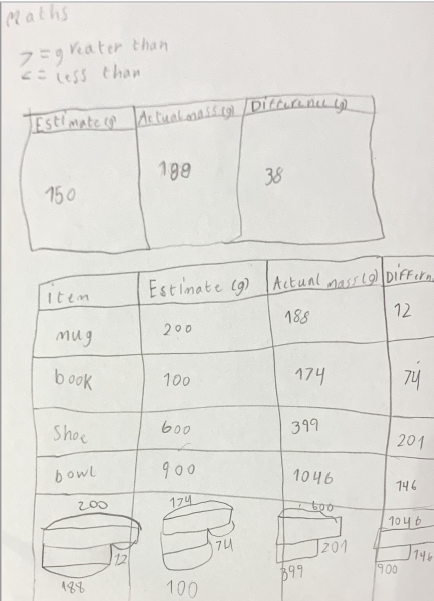 Maths
> = greater than
< = less than
Estimate (g) Actual mass (g) Difference (g)
150 188 38
item Estimate (g) Actual mass (g) Differen
mug 200 188 12
book 100 174 74
Shoe 600 399 201
bowl 900 1046 146
200 174 600 1046
12 74 201 146
188 100 399 900